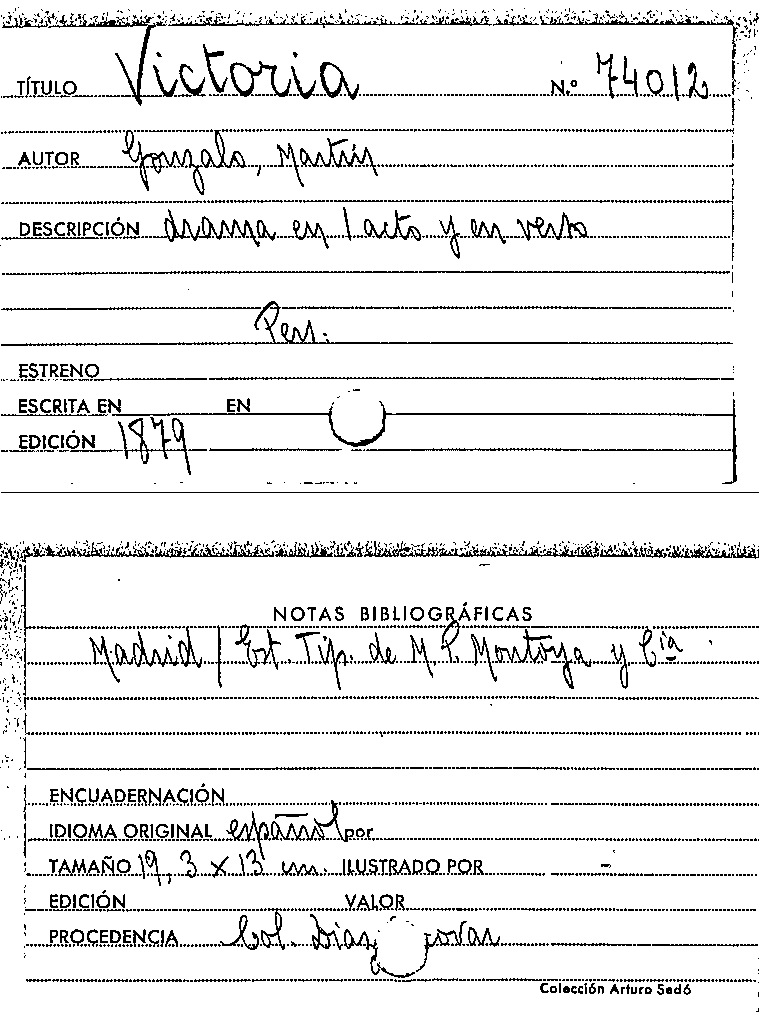 TÍTULO Victoria N.º 74012
AUTOR Gonzalo, Martín
DESCRIPCIÓN drama en 1 acto y en verso
Pers.
ESTRENO
ESCRITA EN EN
EDICIÓN 1879
NOTAS BIBLIOGRÁFICAS
Madrid / Est. Tip. de M. P. Montoya y Cía
ENCUADERNACIÓN
IDIOMA ORIGINAL español por
TAMAÑO 19,3 x 13 cm. ILUSTRADO POR -
EDICIÓN VALOR
PROCEDENCIA Col. Díaz
Colección Arturo Sedó